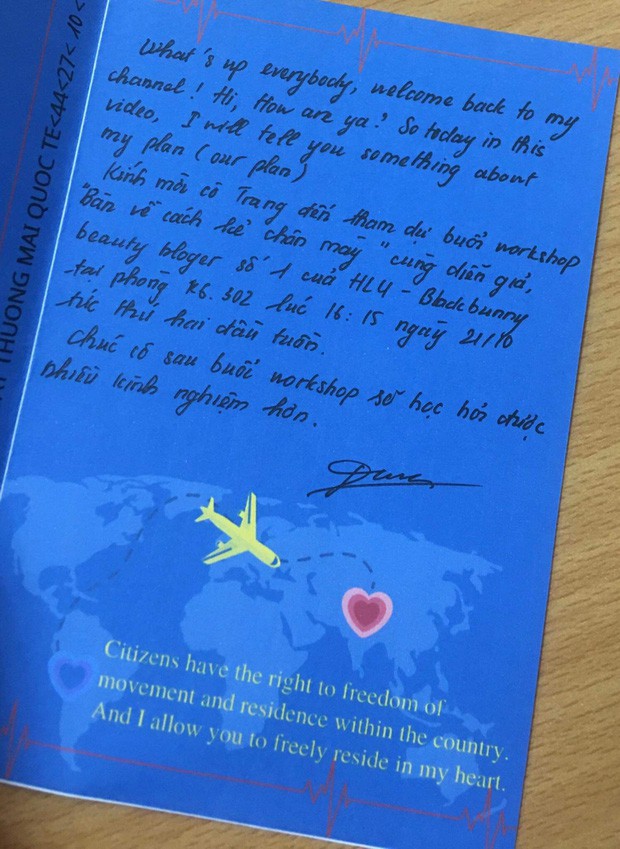 THUONG MAI QUOC TE<44<27< 10 <
What's up everybody, welcome back to my
channel! Hi, How are ya? So today in this
video, I will tell you something about
my plan (our plan)
Kính mời cô Trang đến tham dự buổi workshop
"Bàn về cách kẻ chân mày" cùng diễn giả,
beauty bloger số 1 của HLU - Blackbunny
tại phòng K6.302 lúc 16:15 ngày 21/10
tức thứ hai đầu tuần.
Chúc cô sau buổi workshop sẽ học hỏi được
nhiều kinh nghiệm hơn.
Citizens have the right to freedom of
movement and residence within the country.
And I allow you to freely reside in my heart.